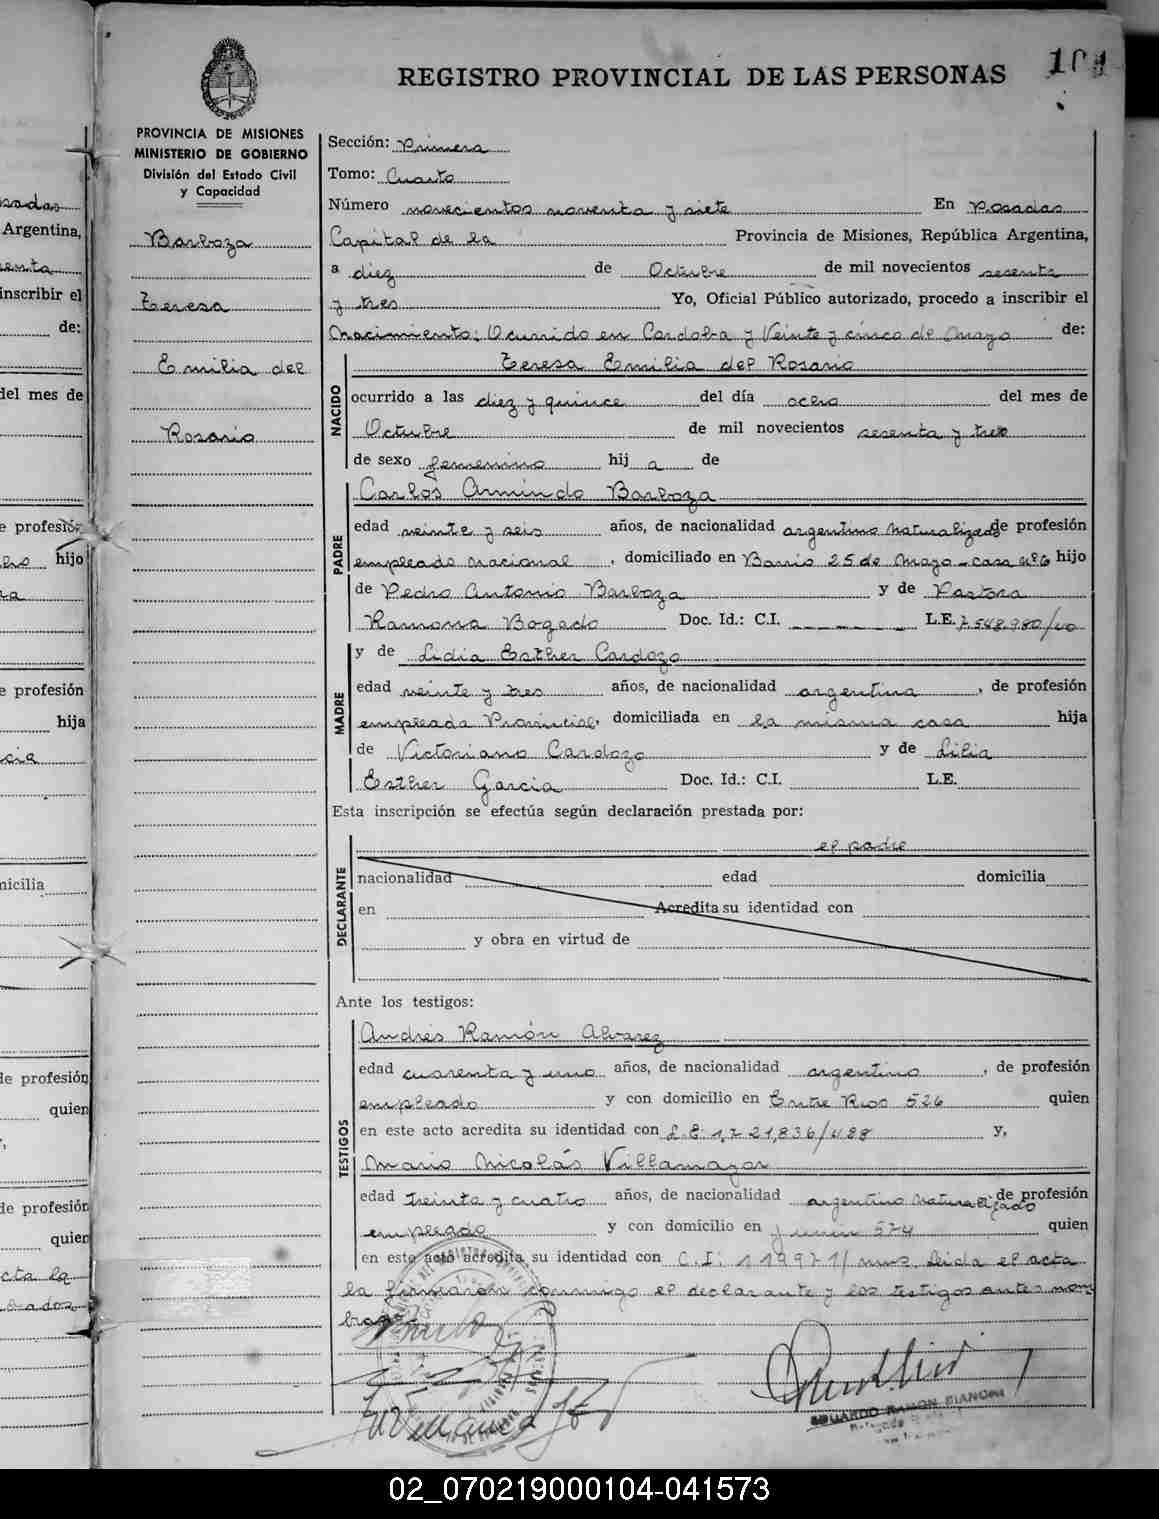 REGISTRO PROVINCIAL DE LAS PERSONAS
PROVINCIA DE MISIONES
MINISTERIO DE GOBIERNO
División del Estado Civil
y Capacidad
Barboza
Teresa
Emilia del
Rosario
Sección: Primera
Tomo: Cuarto
Número novecientos noventa y siete En Posadas
Capital de la Provincia de Misiones, República Argentina,
a diez de Octubre de mil novecientos sesenta
y tres Yo, Oficial Público autorizado, procedo a inscribir el
Nacimiento: Ocurrido en Cordoba y Veinte y cinco de Mayo de:
NACIDO
Teresa Emilia del Rosario
ocurrido a las diez y quince del día ocho del mes de
Octubre de mil novecientos sesenta y tres
de sexo femenino hij a de
PADRE
Carlos Armindo Barboza
edad veinte y seis años, de nacionalidad argentino naturalizado de profesión
empleado nacional, domiciliado en Barrio 25 de Mayo - casa nº6 hijo
de Pedro Antonio Barboza y de Pastora
Ramona Bogado Doc. Id.: C.I. L.E. 7.548.980/40
y de Lidia Esther Cardozo
MADRE
edad veinte y tres años, de nacionalidad argentina, de profesión
empleada Provincial, domiciliada en la misma casa hija
de Victoriano Cardozo y de Lilia
Esther Garcia Doc. Id.: C.I. L.E.
Esta inscripción se efectúa según declaración prestada por:
DECLARANTE
el padre
nacionalidad edad domicilia
en Acredita su identidad con
y obra en virtud de
Ante los testigos:
TESTIGOS
Andrés Ramón Alvarez
edad cuarenta y uno años, de nacionalidad argentino, de profesión
empleado y con domicilio en Entre Rios 526 quien
en este acto acredita su identidad con L.E. 1,721,836/488 y,
Mario Nicolás Villamayor
edad treinta y cuatro años, de nacionalidad argentino naturalizado de profesión
empleado y con domicilio en Junin 574 quien
en este acto acredita su identidad con C.I: 119971/mns. Leida el acta
la firmaron conmigo el declarante y los testigos antes nom
brados
EDUARDO RAMON BIANCHI
02_070219000104-041573